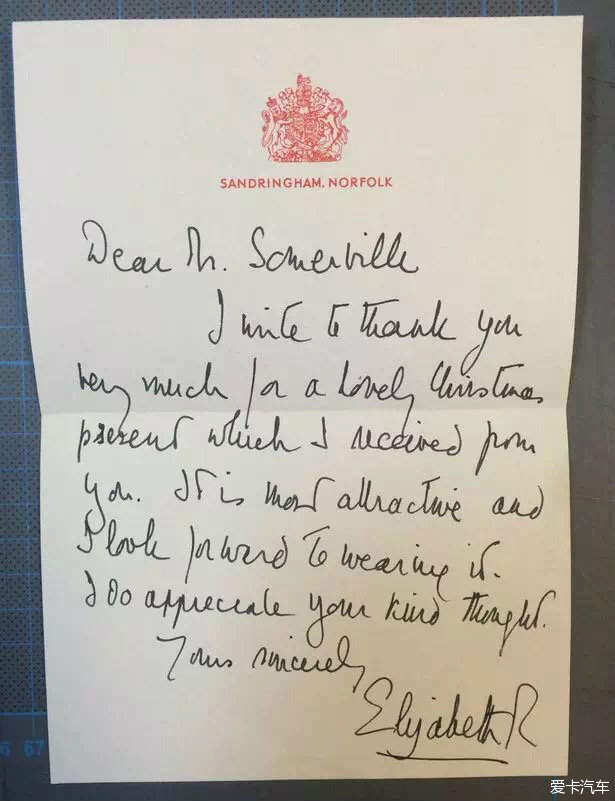 SANDRINGHAM, NORFOLK
Dear Mr. Somerville
I write to thank you
very much for a lovely Christmas
present which I received from
you. It is most attractive and
I look forward to wearing it.
I do appreciate your kind thought.
Yours sincerely
Elizabeth R
6 67
爱卡汽车